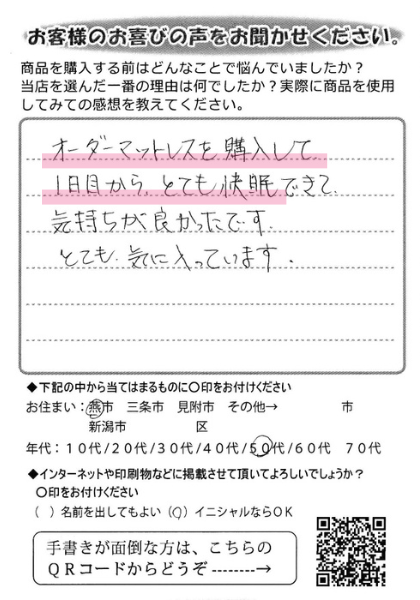 お客様のお喜びの声をお聞かせください。
商品を購入する前はどんなことで悩んでいましたか？
当店を選んだ一番の理由は何でしたか？実際に商品を使用
してみての感想を教えてください。
オーダーマットレスを購入して、
1日目から、とても快眠できて、
気持ちが良かったです。
とても、気に入っています。
◆下記の中から当てはまるものに〇印をお付けください
お住まい：燕市　三条市　見附市　その他→　　　　市
新潟市　　　　　区
年代：１０代/２０代/３０代/４０代/５０代/６０代　７０代
◆インターネットや印刷物などに掲載させて頂いてよろしいでしょうか？
〇印をお付けください
（　）名前を出してもよい（○）イニシャルならＯＫ
手書きが面倒な方は、こちらの
ＱＲコードからどうぞ --------→